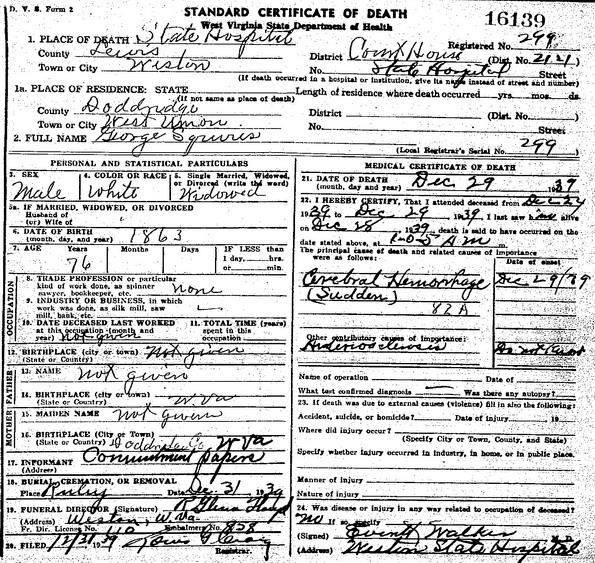 D. V. S. Form 2
STANDARD CERTIFICATE OF DEATH
West Virginia State Department of Health
16139
1. PLACE OF DEATH State Hospital
Registered No. 299
County Lewis
District Court House (Dist. No. 2121
Town or City Weston
No. State Hospital Street
(If death occurred in a hospital or institution, give its name instead of street and number)
1a. PLACE OF RESIDENCE: STATE
Length of residence where death occurred yrs. mos. ds.
(If not same as place of death)
County Doddridge
District (Dist. No.)
Town or City West Union
No. Street
2. FULL NAME George Squires
299
(Local Registrar's Serial No.
PERSONAL AND STATISTICAL PARTICULARS
3. SEX Male
4. COLOR OR RACE White
5. Single, Married, Widowed, or Divorced (write the word) Widowed
5a. IF MARRIED, WIDOWED, OR DIVORCED
Husband of
(or) Wife of
6. DATE OF BIRTH (month, day, and year) 1863
7. AGE Years Months Days IF LESS than
76 1 day, hrs.
or min.
OCCUPATION
8. TRADE PROFESSION or particular kind of work done, as spinner sawyer, bookkeeper, etc. none
9. INDUSTRY OR BUSINESS, in which work was done, as silk mill, saw mill, bank, etc.
10. DATE DECEASED LAST WORKED at this occupation (month and year) not given
11. TOTAL TIME (years) spent in this occupation
12. BIRTHPLACE (city or town) not given
(State or Country)
FATHER
13. NAME not given
14. BIRTHPLACE (city or town) W Va
(State or Country)
MOTHER
15. MAIDEN NAME not given
16. BIRTHPLACE (City or Town) Doddridge Co W Va
(State or Country)
17. INFORMANT Commitment papers
(Address)
18. BURIAL, CREMATION, OR REMOVAL
Place Date Dec 31 1939
19. FUNERAL DIRECTOR (Signature)
(Address) Weston, W. Va
Fr. Dir. License No. 110 Embalmer's No. 828
20. FILED 12/31 1939 Lewis
Registrar.
MEDICAL CERTIFICATE OF DEATH
21. DATE OF DEATH (month, day and year) Dec 29 1939
22. I HEREBY CERTIFY, That I attended deceased from Dec 24
1939 to Dec 29 1939. I last saw him alive
on Dec 28 1939 death is said to have occurred on the
date stated above, at A m.
The principal cause of death and related causes of importance were as follows:
Date of onset
Cerebral Hemorrhage Dec 29/39
(Sudden)
82A
Other contributory causes of importance:
Arteriosclerosis Do not know
Name of operation Date of
What test confirmed diagnosis Was there any autopsy?
23. If death was due to external causes (violence) fill in also the following:
Accident, suicide, or homicide? Date of injury 19
Where did injury occur?
(Specify City or Town, County, and State)
Specify whether injury occurred in industry, in home, or in public place.
Manner of injury
Nature of injury
24. Was disease or injury in any way related to occupation of deceased?
no If so specify
(Signed) Everett Walker M. D.
(Address) Weston State Hospital